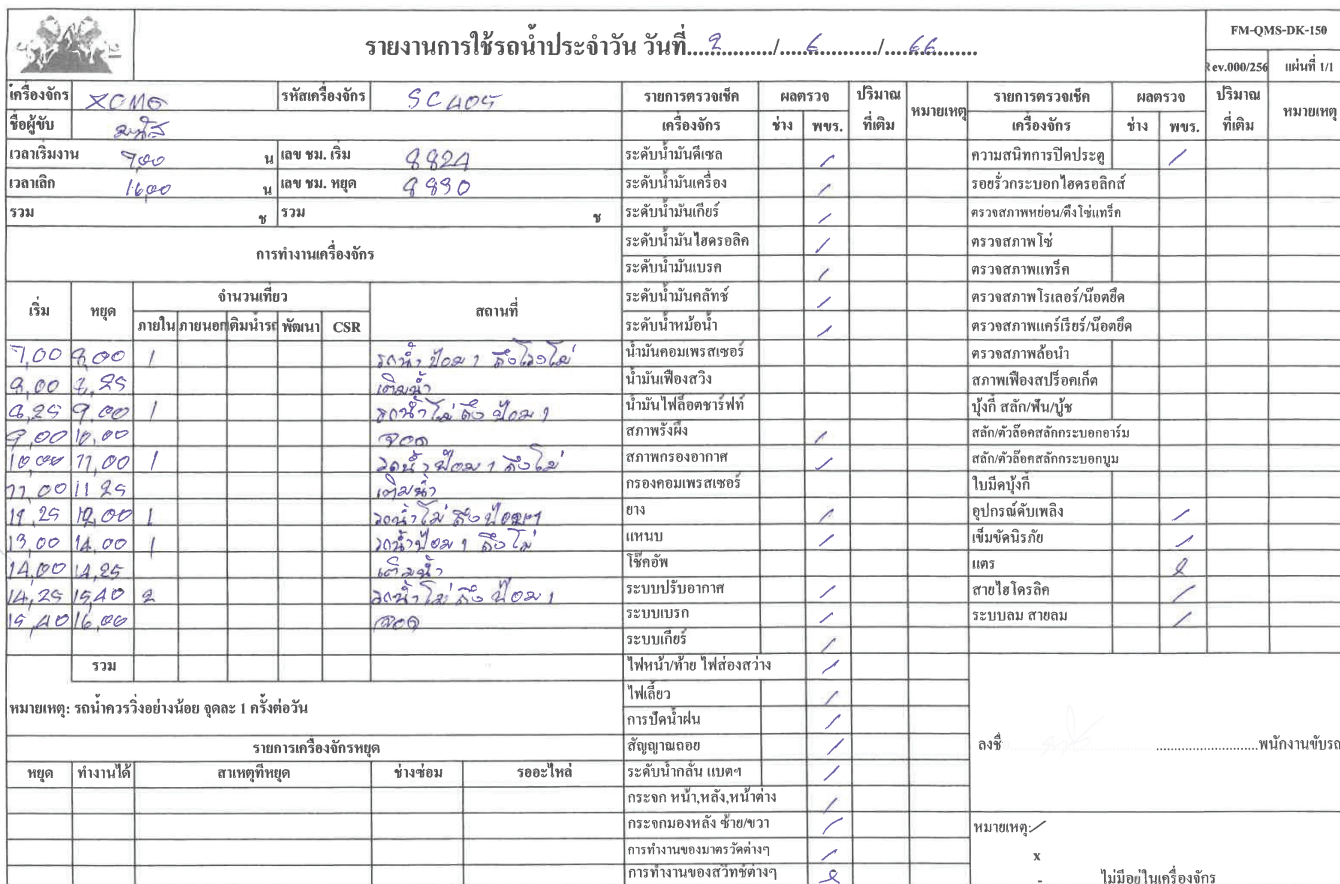 รายงานการใช้รถน้ำประจำวัน วันที่....2........./....6........../....66.......
FM-QMS-DK-150
Rev.000/256 แผ่นที่ 1/1
เครื่องจักร XCMG รหัสเครื่องจักร SC405
ชื่อผู้ขับ
เวลาเริ่มงาน 7.00 น เลข ชม. เริ่ม 8824
เวลาเลิก 16.00 น เลข ชม. หยุด 8830
รวม ช รวม ช
การทำงานเครื่องจักร
เริ่ม หยุด จำนวนเที่ยว สถานที่
ภายใน ภายนอก เติมน้ำรถ พัฒนา CSR
7,00 8,00 1 รดน้ำ ป้อม 1 ถึงโรงโม่
8,00 8,25 เติมน้ำ
8,25 9,00 1 รดน้ำโม่ ถึง ป้อม 1
9,00 10,00 จอด
10,00 11,00 1 รดน้ำ ป้อม 1 ถึงโม่
11,00 11 25 เติมน้ำ
11,25 12,00 1 รดน้ำโม่ ถึง ป้อม 1
13,00 14,00 1 รดน้ำป้อม 1 ถึง โม่
14,00 14,25 เติมน้ำ
14,25 15,40 2 รดน้ำโม่ ถึง ป้อม 1
15,40 16,00 จอด
รวม
หมายเหตุ: รถน้ำควรวิ่งอย่างน้อย จุดละ 1 ครั้งต่อวัน
รายการเครื่องจักรหยุด
หยุด ทำงานได้ สาเหตุที่หยุด ช่างซ่อม รออะไหล่
รายการตรวจเช็ค ผลตรวจ ปริมาณ หมายเหตุ
เครื่องจักร ช่าง พขร. ที่เติม
ระดับน้ำมันดีเซล /
ระดับน้ำมันเครื่อง /
ระดับน้ำมันเกียร์ /
ระดับน้ำมันไฮดรอลิค /
ระดับน้ำมันเบรค /
ระดับน้ำมันคลัทช์ /
ระดับน้ำหม้อน้ำ /
น้ำมันคอมเพรสเซอร์
น้ำมันเฟืองสวิง
น้ำมันไฟล็อตชาร์ฟท์
สภาพรังผึ้ง /
สภาพกรองอากาศ /
กรองคอมเพรสเซอร์
ยาง /
แหนบ /
โช๊คอัพ
ระบบปรับอากาศ /
ระบบเบรก /
ระบบเกียร์ /
ไฟหน้า/ท้าย ไฟส่องสว่าง /
ไฟเลี้ยว /
การปัดน้ำฝน /
สัญญาณถอย /
ระดับน้ำกลั่น แบตฯ /
กระจก หน้า,หลัง,หน้าต่าง /
กระจกมองหลัง ซ้าย/ขวา /
การทำงานของมาตรวัดต่างๆ /
การทำงานของสวิทช์ต่างๆ
รายการตรวจเช็ค ผลตรวจ ปริมาณ หมายเหตุ
เครื่องจักร ช่าง พขร. ที่เติม
ความสนิทการปิดประตู /
รอยรั่วกระบอกไฮดรอลิกส์
ตรวจสภาพหย่อน/ตึงโซ่แทร็ค
ตรวจสภาพโซ่
ตรวจสภาพแทร็ค
ตรวจสภาพโรเลอร์/น๊อตยึด
ตรวจสภาพแคร์เรียร์/น๊อตยึด
ตรวจสภาพล้อนำ
สภาพเฟืองสปร็อคเก็ต
บุ้งกี๋ สลัก/ฟัน/บู้ช
สลัก/ตัวล๊อคสลักกระบอกอาร์ม
สลัก/ตัวล๊อคสลักกระบอกบูม
ใบมีดบุ้งกี๋
อุปกรณ์ดับเพลิง /
เข็มขัดนิรภัย /
แตร
สายไฮโดรลิค /
ระบบลม สายลม /
ลงชื่อ ...........................พนักงานขับรถ
หมายเหตุ: /
x
- ไม่มีอยู่ในเครื่องจักร